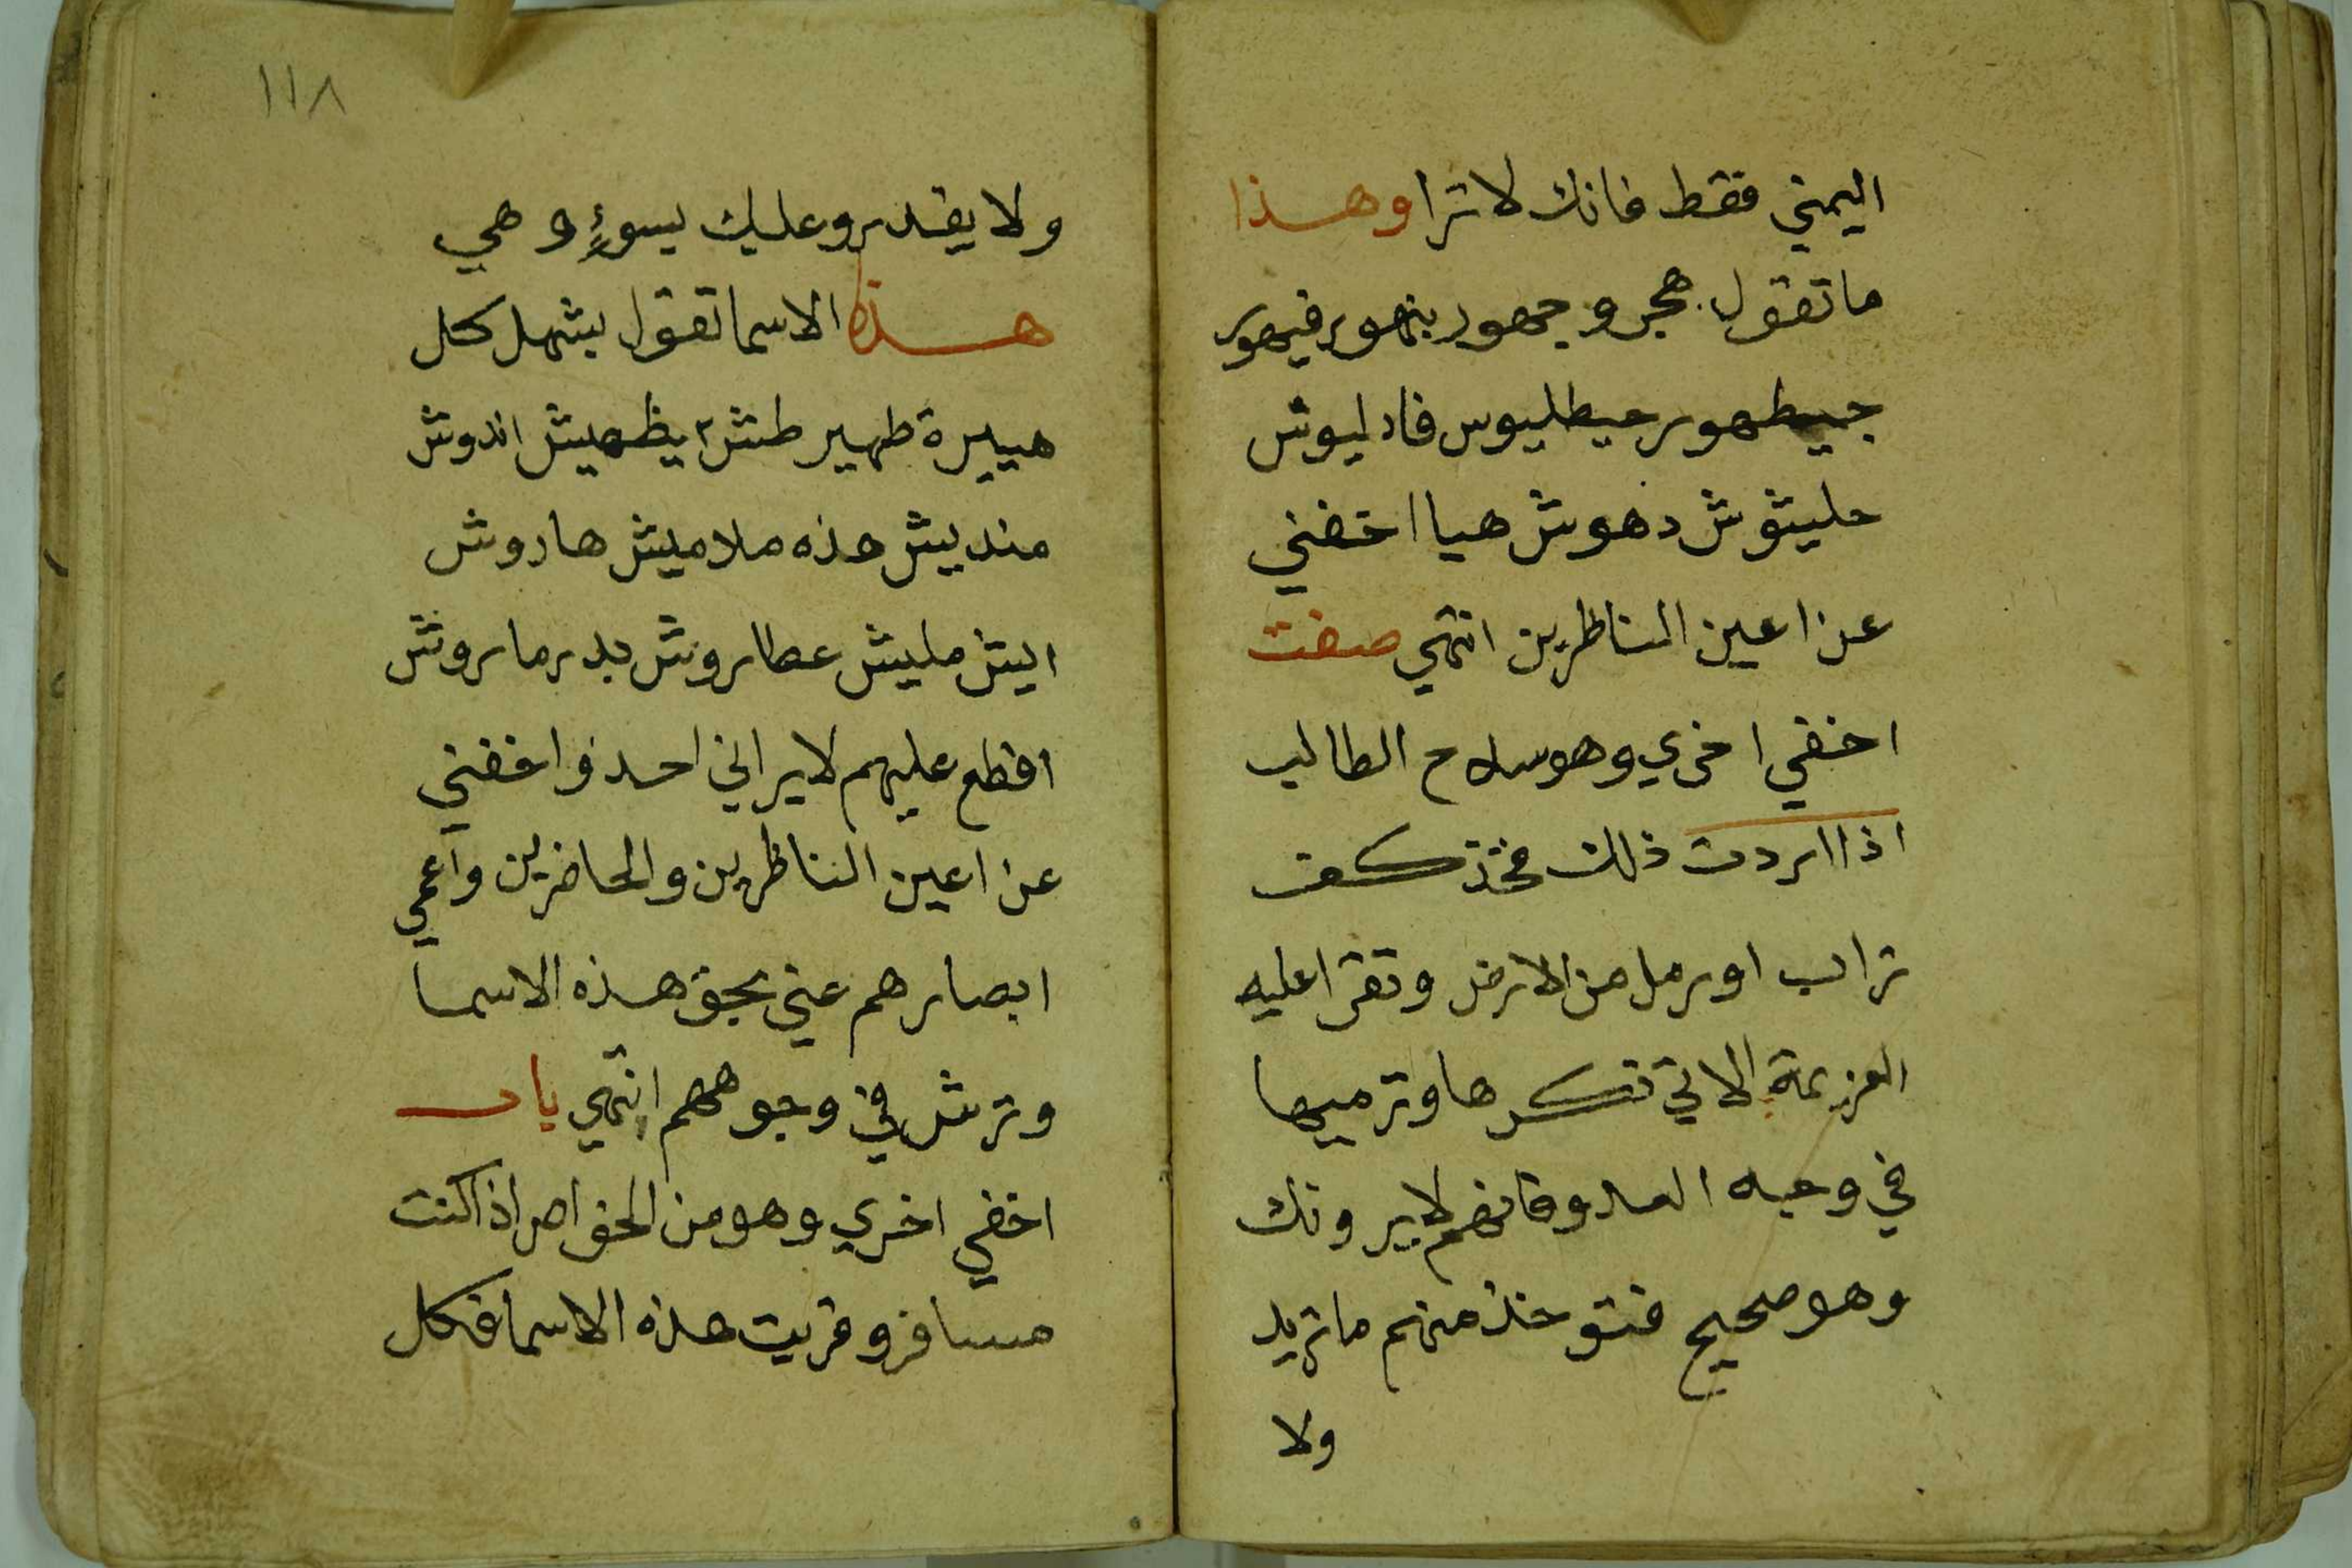 اليمني فقط فانك لا ترا وهذا
ما تقول هجر وجهور بنهور فيهور
جيطهور حيطليوس فادليوش
حليثوش دهوش هيا اخفني
عن اعين الناظرين انتهي صفت
اخفي اخري وهو سلاح الطالب
اذا اردت ذلك فخذ كف
تراب او رمل من الارض وتقرا عليه
العزيمة الاتي ذكرها وترميها
في وجه العدو فانهم لا يرونك
وهو صحيح خذ منهم ما تريد
ولا
١١٨
ولا يقدرو عليك بسوءٍ وهي
هذه الاسما تقول بشهل كل
هييرة طهير طش ٢ يظهيش اندوش
منديش هذه ملاميش هاروش
اليش مليش عطاروش بدرماروش
اقطع عليهم لا يراني احد واخفني
عن اعين الناظرين والحاضرين واعمي
ابصارهم عني بحق هذه الاسما
وترش في وجوههم انتهي باب
اخفي اخري وهو من الخواص اذا كنت
مسافر وقريت هذه الاسما فكل